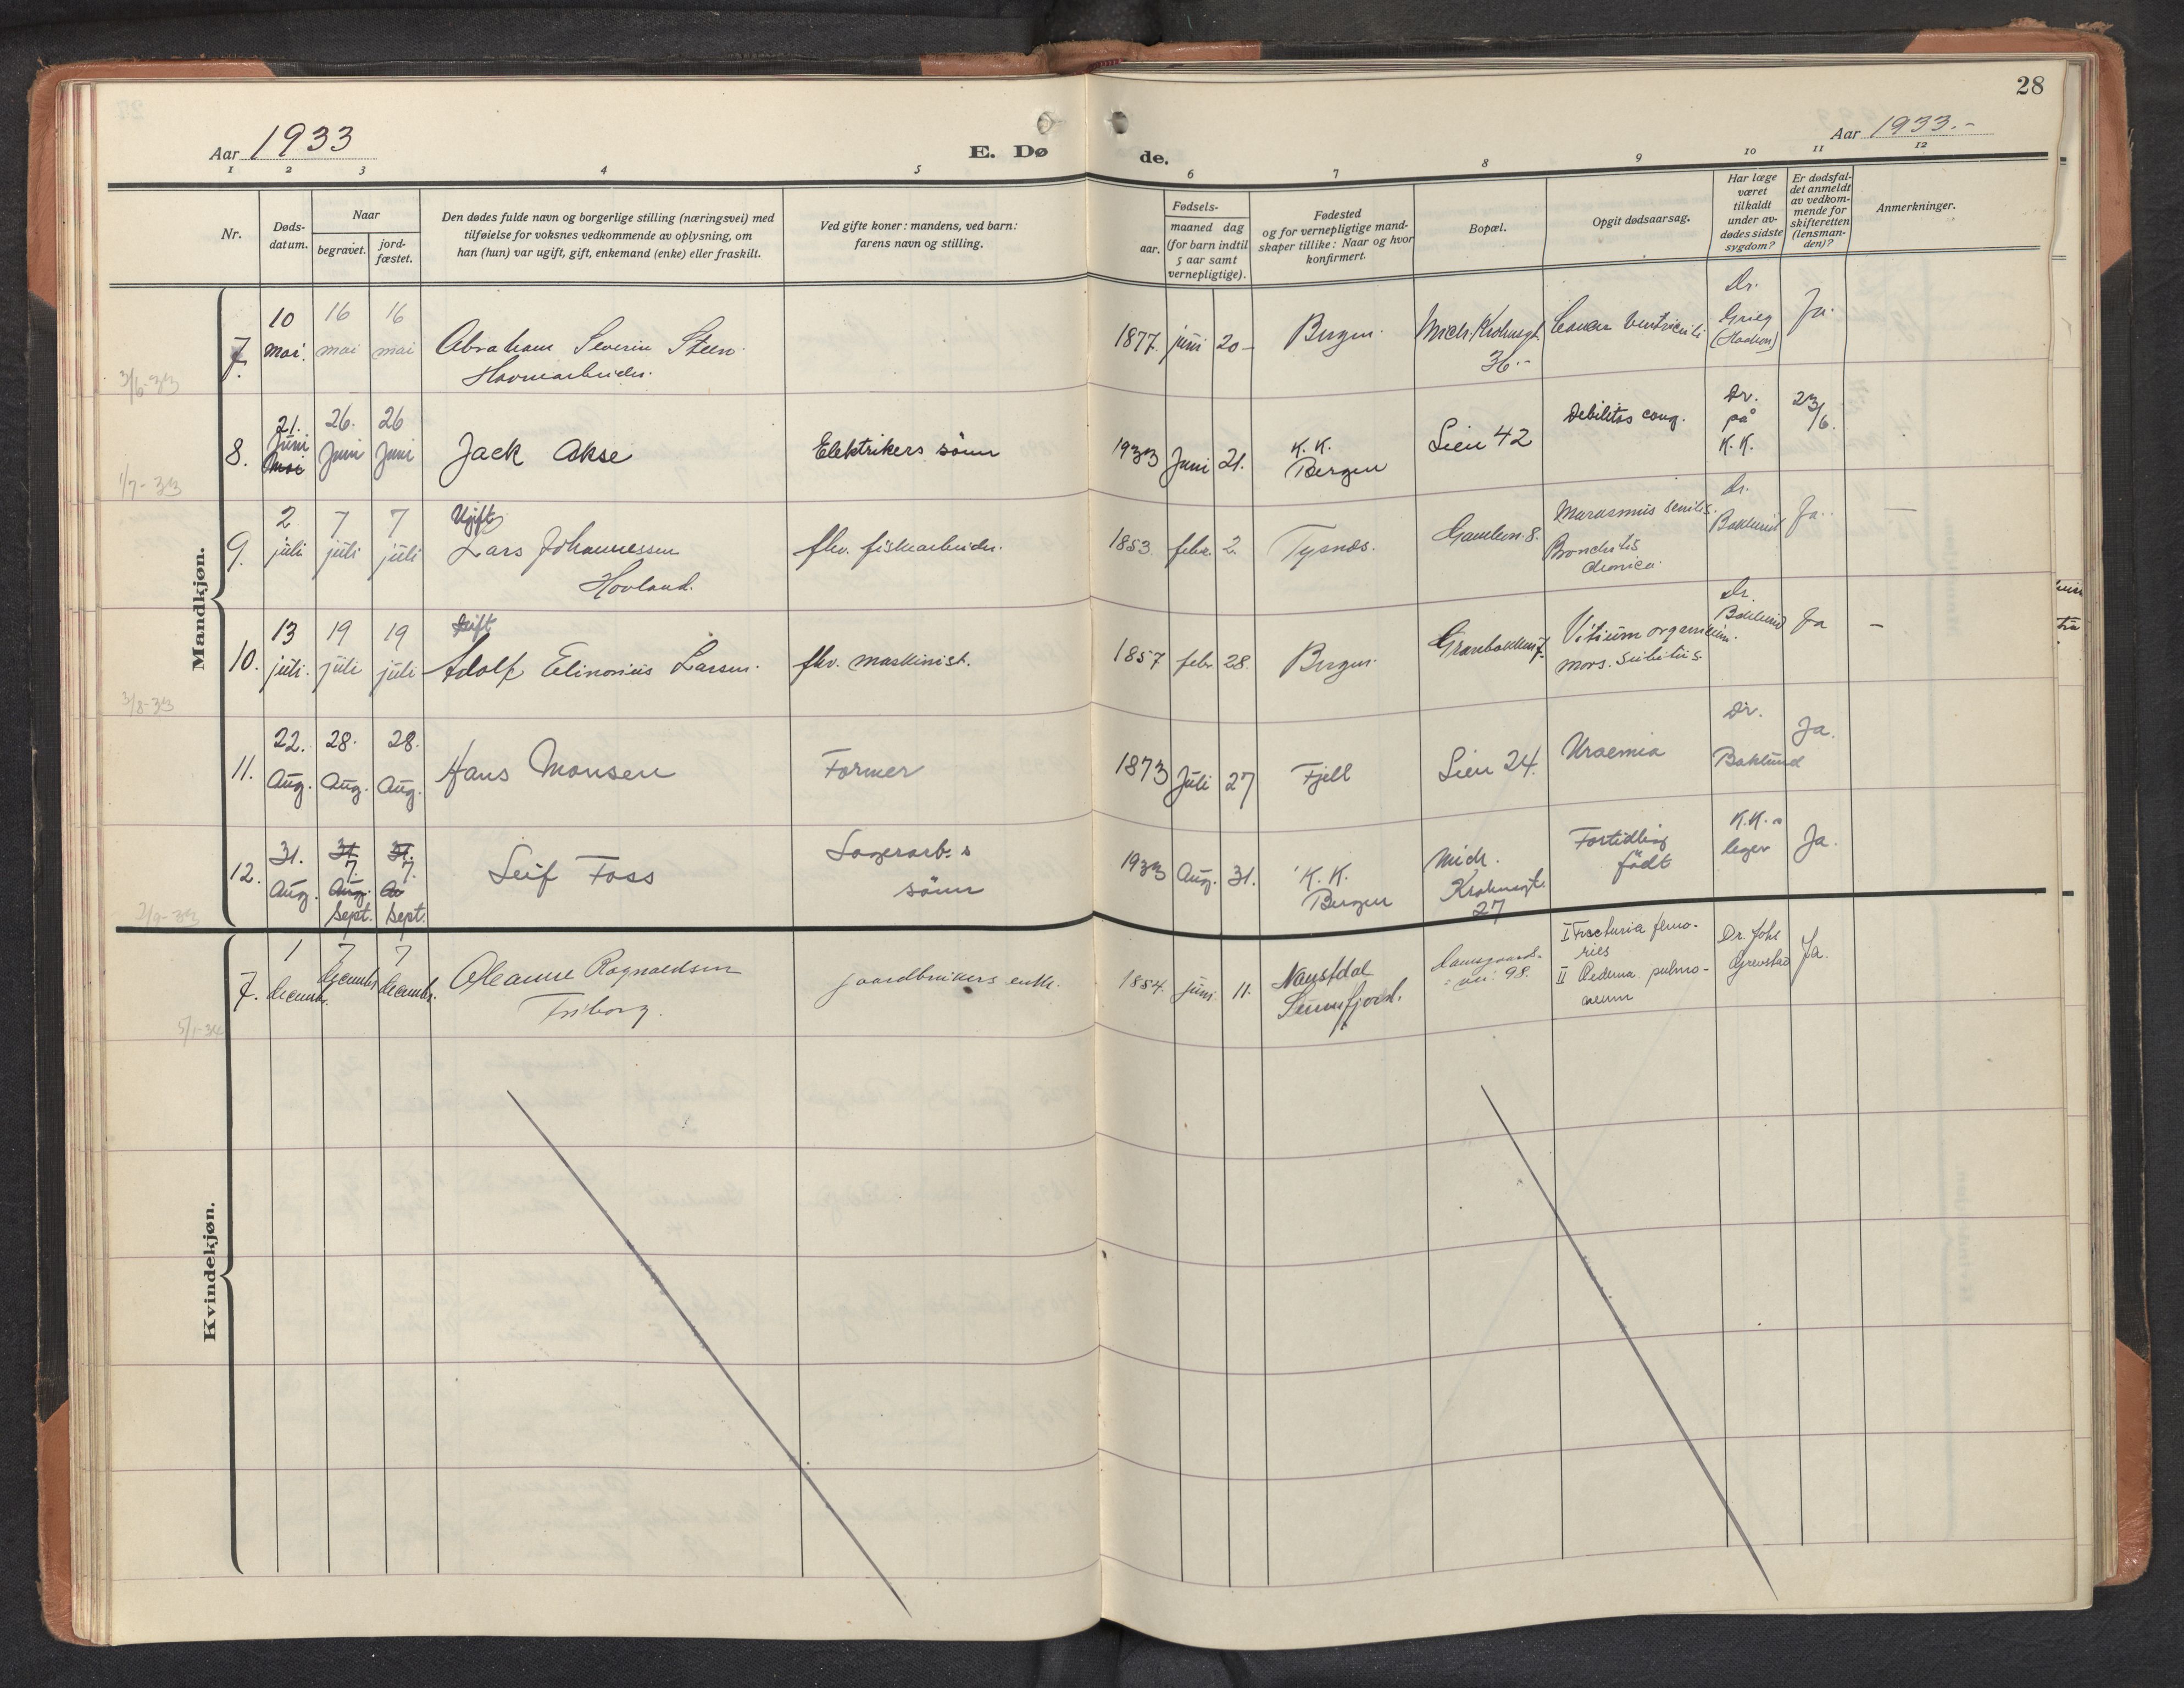 28
Aar 1933
E. Dø
de.
Aar 1933.-
1 2 3 4 5 6 7 8 9 10 11 12
Nr.
Døds-
datum.
Naar
begravet.
jord-
fæstet.
Den dødes fulde navn og borgerlige stilling (næringsvei) med
tilføielse for voksnes vedkommende av oplysning, om
han (hun) var ugift, gift, enkemand (enke) eller fraskilt.
Ved gifte koner: mandens, ved barn:
farens navn og stilling.
Fødsels-
aar.
maaned dag
(for barn indtil
5 aar samt
vernepligtige).
Fødested
og for vernepligtige mand-
skaper tillike: Naar og hvor
konfirmert.
Bopæl.
Opgit dødsaarsag.
Har læge
været
tilkaldt
under av-
dødes sidste
sygdom?
Er dødsfal-
det anmeldt
av vedkom-
mende for
skifteretten
(lensman-
den)?
Anmerkninger.
Mandkjøn.
7.
10
mai.
16
mai
16
mai
Abraham Severin Steen.
Havnearbeider.
1877. juni 20-
Bergen.
Mich. Krohnsgt.
36.-
Cancer Ventriculi
Dr.
Grieg
Ja.
3/6-33
8.
21.
Juni
Mai
26.
Juni
26
Juni
Jack Akse
Elektrikers sönn
1933 Juni 21.
K. K.
Bergen
Lien 42
Debilitas cong.
Dr.
på
K.K.
23/6.
1/7-33
9.
2
juli
7
juli
7
juli
Ugift
Lars Johannessen
Hovland.
fhv. fiskearbeider.
1853. febr. 2.
Tysnes.
Gamlen. 8.
Marasmus senilis.
Bronchitis
chronica.
Dr.
Baklund
Ja.
10.
13
juli.
19
juli
19
juli
Gift
Adolf Elinonius Larsen.
fhv. maskinist.
1857 febr. 28.
Bergen.
Vitium organicum.
mors. subitus.
Dr.
Baklund
Ja
-
3/8-33
11.
22.
Aug.
28.
Aug.
28.
Aug.
Hans Monsen
Former
1873 Juli 27
Fjell
Lien 24.
Uraemia
Dr.
Baklund
Ja.
12.
31.
Aug.
31.
7.
Aug.
Sept.
31.
7.
Au
Sept.
Leif Foss
Lagerarb.s
sönn
1933 Aug. 31.
K. K.
Bergen
Mich.
Krohnsgt.
27
Fortidlig
födt
K.K.s
leger
Ja.
2/9-33
Kvindekjøn.
7.
1
decembr.
7
decembr
7
decembr.
Oleanne Ragnaldsen
Friborg.
gaardbrukers enke.
1854. juni 11.
Naustdal
Sunnfjord.
Damsgaards-
vei. 98.
I Fractura femo-
ries
II Oedema pulmo-
num
Dr. Johs
Grevstad
Ja.
5/1-34